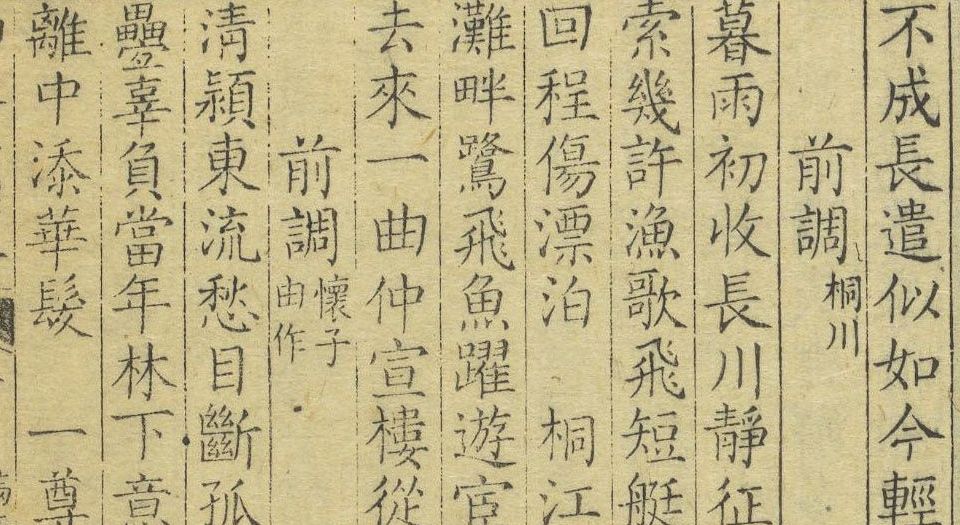 不成長遣似如今輕
前調桐川
暮雨初收長川靜征
索幾許漁歌飛短艇
回程傷漂泊　桐江
灘畔鷺飛魚躍遊宦
去來一曲仲宣樓從
前調懷子曲作
清潁東流愁目斷孤
疊辜負當年林下意
離中添華髮　一尊